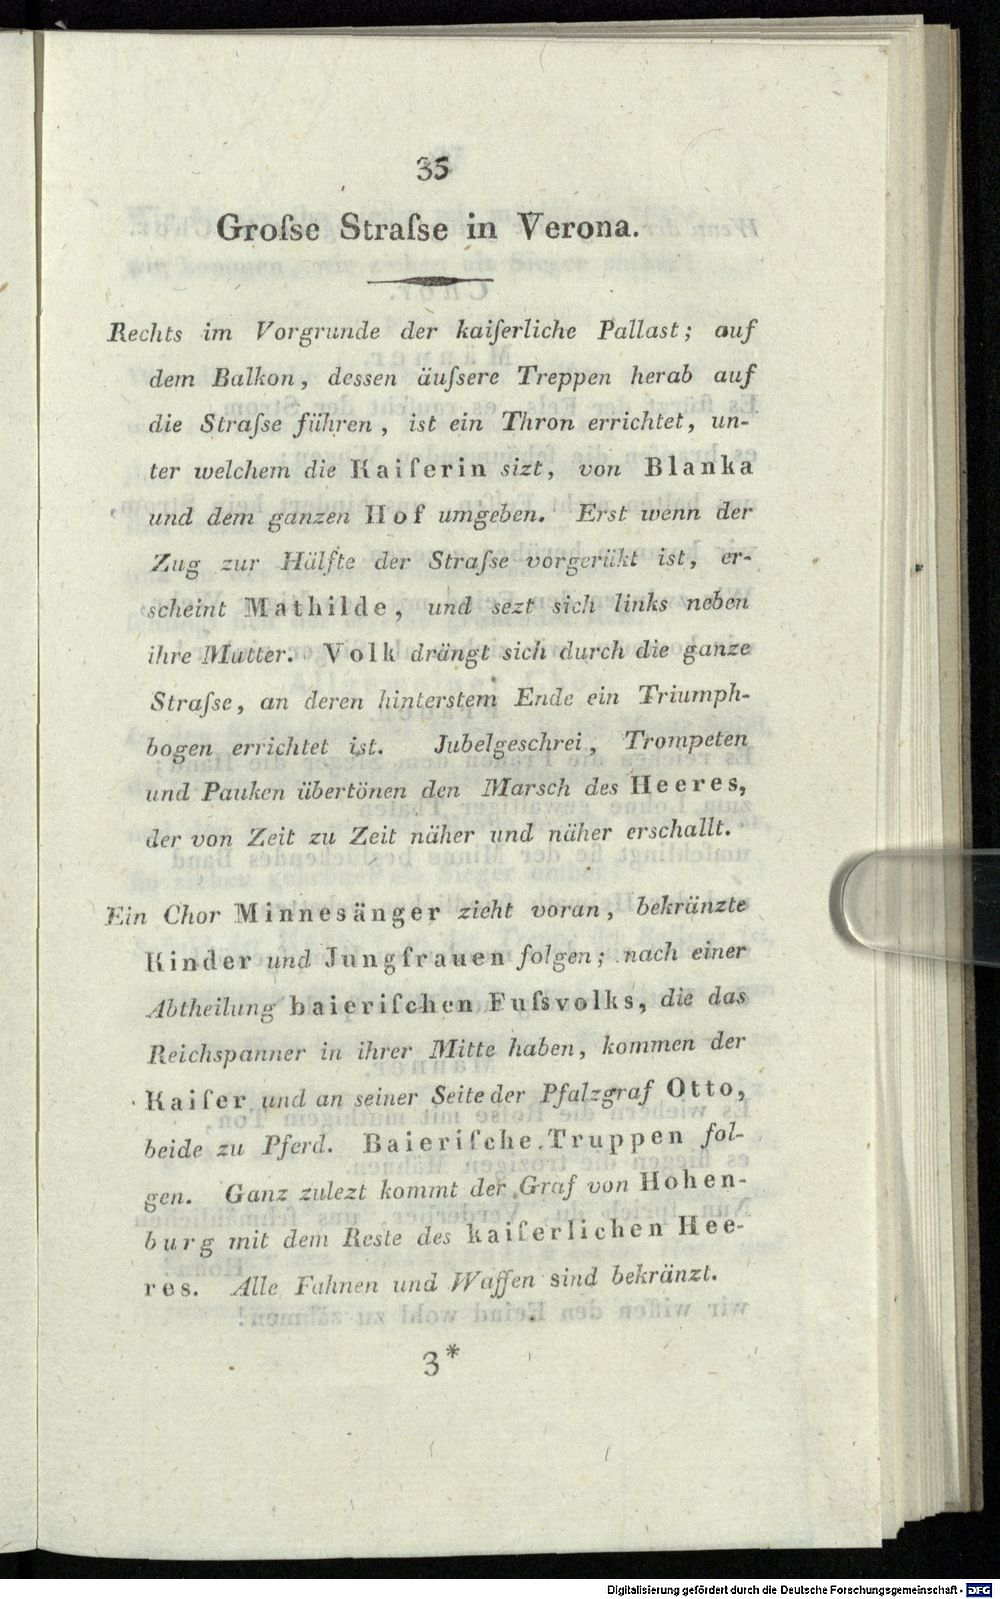 35
Groſse Straſse in Verona.
Rechts im Vorgrunde der kaiſerliche Pallast; auf
dem Balkon, dessen äuſsere Treppen herab auf
die Straſse führen, ist ein Thron errichtet, un-
ter welchem die Kaiſerin sizt, von Blanka
und dem ganzen Hof umgeben. Erst wenn der
Zug zur Hälfte der Straſse vorgerükt ist, er-
scheint Mathilde, und sezt sich links neben
ihre Mutter. Volk drängt sich durch die ganze
Straſse, an deren hinterstem Ende ein Triumph-
bogen errichtet ist. Jubelgeschrei, Trompeten
und Pauken übertönen den Marsch des Heeres,
der von Zeit zu Zeit näher und näher erschallt.
Ein Chor Minnesänger zieht voran, bekränzte
Kinder und Jungfrauen folgen; nach einer
Abtheilung baieriſchen Fuſsvolks, die das
Reichspanner in ihrer Mitte haben, kommen der
Kaiſer und an seiner Seite der Pfalzgraf Otto,
beide zu Pferd. Baieriſche Truppen fol-
gen. Ganz zulezt kommt der Graf von Hohen-
burg mit dem Reste des kaiſerlichen Hee-
res. Alle Fahnen und Waffen sind bekränzt.
3*
Digitalisierung gefördert durch die Deutsche Forschungsgemeinschaft - DFG